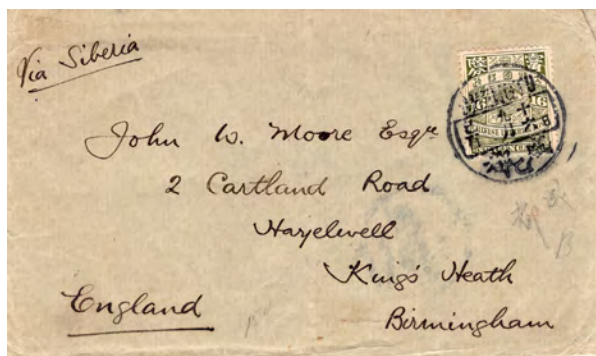 Via Siberia
John W. Moore Esqre
2 Cartland Road
Hazelwell
King's Heath
Birmingham
England
16
16